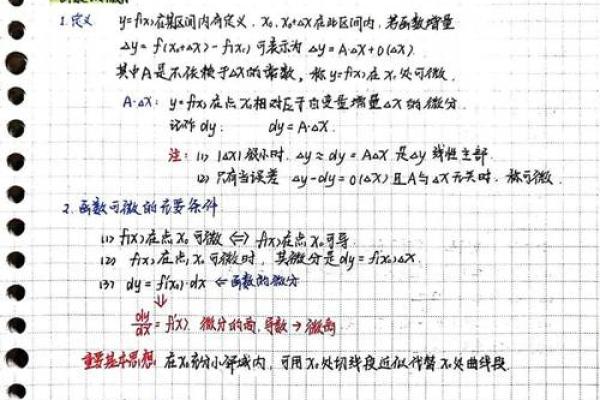 1. 定义 y=f(x)在某区间内有定义, x₀, x₀+Δx在此区间内, 若函数增量
Δy = f(x₀+Δx) - f(x₀) 可表示为 Δy = A·Δx + o(Δx).
其中A是不依赖于Δx的常数, 称y=f(x)在x₀处可微.
A·Δx: y=f(x)在点x₀相对应于自变量增量Δx的微分.
记作 dy: dy = A·Δx.
注: (1) |Δx|很小时, Δy ≈ dy = AΔx 是Δy线性主部.
(2) 只有当误差 Δy-dy=o(Δx) 且A与Δx无关时, 称可微.
2. 函数可微的充要条件
(1) f(x)在点x₀可微 ⇔ f(x)在点x₀可导.
(2) f(x)在点x₀可微时, 其微分是dy = f'(x₀)Δx.
(3) dy = f'(x₀)·dx ⇐ 函数的微分
⇓
dy/dx = f'(x). 微分的商, 导数 → 微商
重要基本思想: 在x₀充分小邻域内, 可用x₀处切线段近似代替x₀处曲线段.